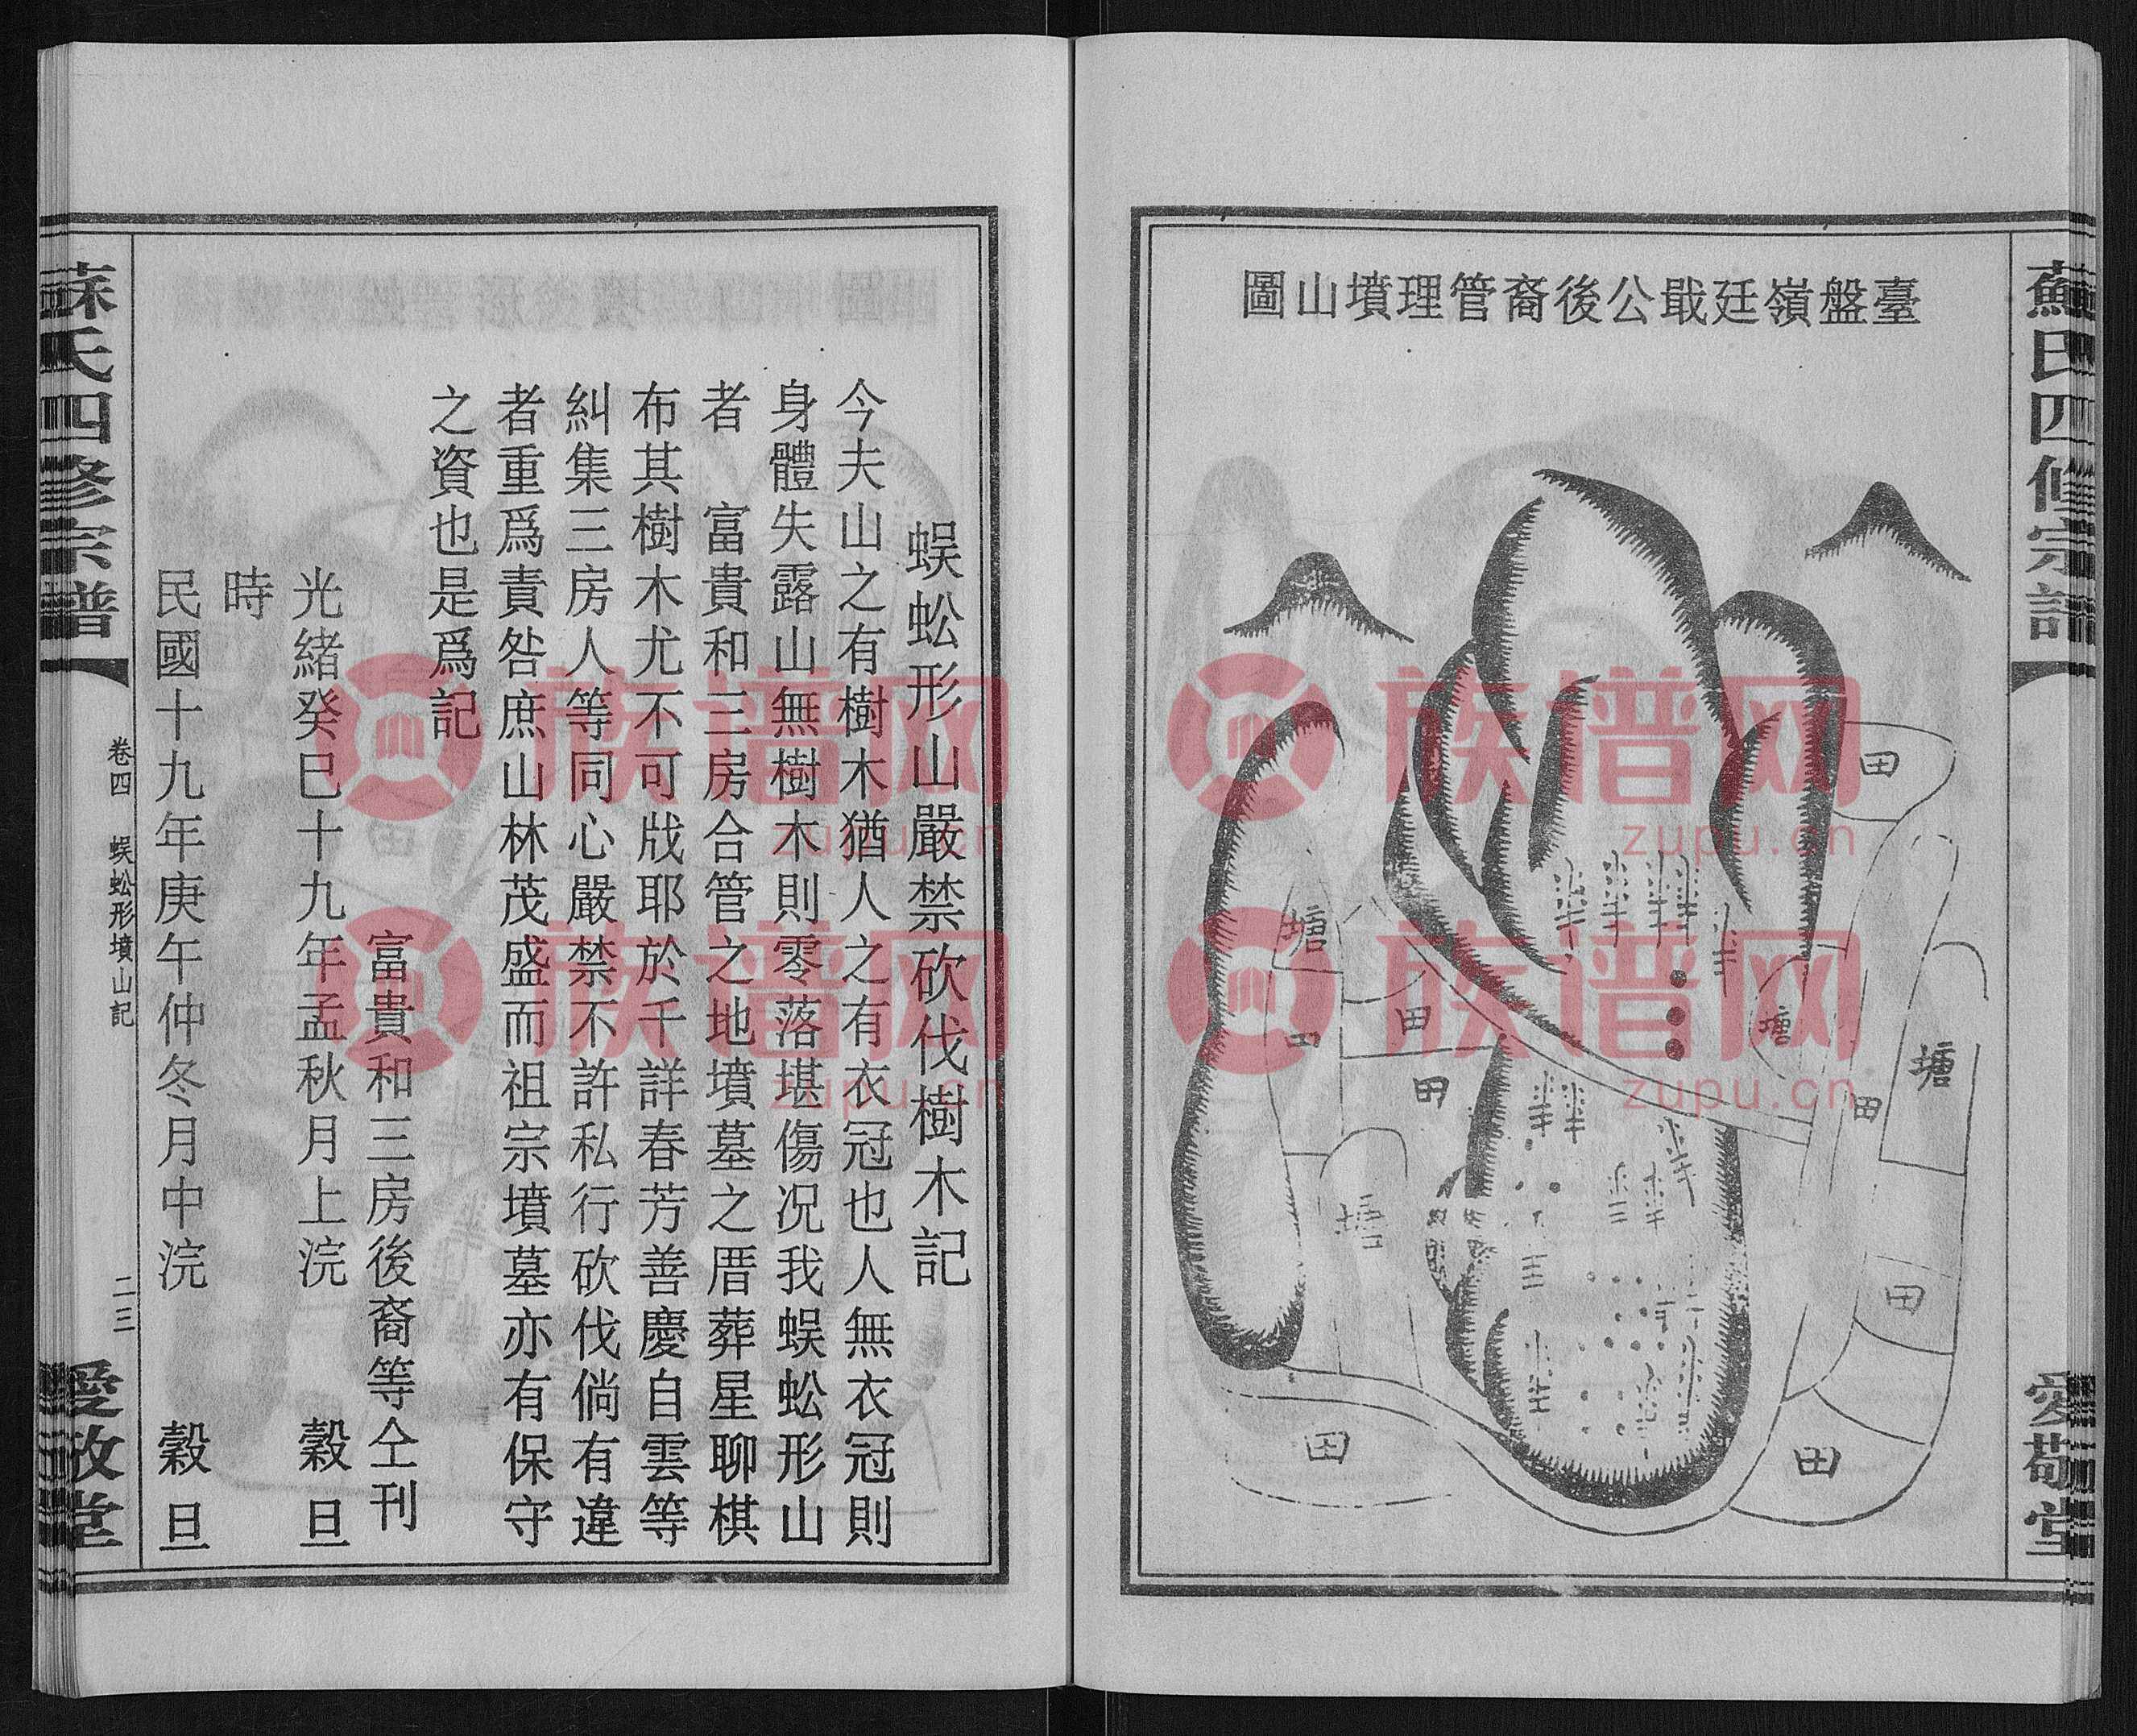 蘇氏四修宗譜
愛敬堂
臺盤嶺廷戢公後裔管理墳山圖
田
塘
田
田
田
塘
塘
田
塘
田
田
田
蜈蚣形山嚴禁砍伐樹木記
今夫山之有樹木猶人之有衣冠也人無衣冠則
身體失露山無樹木則零落堪傷况我蜈蚣形山
者　富貴和三房合管之地墳墓之厝葬星聊棋
布其樹木尤不可戕耶於千詳春芳善慶自雲等
糾集三房人等同心嚴禁不許私行砍伐倘有違
者重爲責咎庶山林茂盛而祖宗墳墓亦有保守
之資也是爲記
富貴和三房後裔等仝刊
光緒癸巳十九年孟秋月上浣　穀旦
時
民國十九年庚午仲冬月中浣　穀旦
蘇氏四修宗譜
卷四　蜈蚣形墳山記
二三
愛敬堂
族谱网
zupu.cn
族谱网
zupu.cn
族谱网
zupu.cn
族谱网
zupu.cn